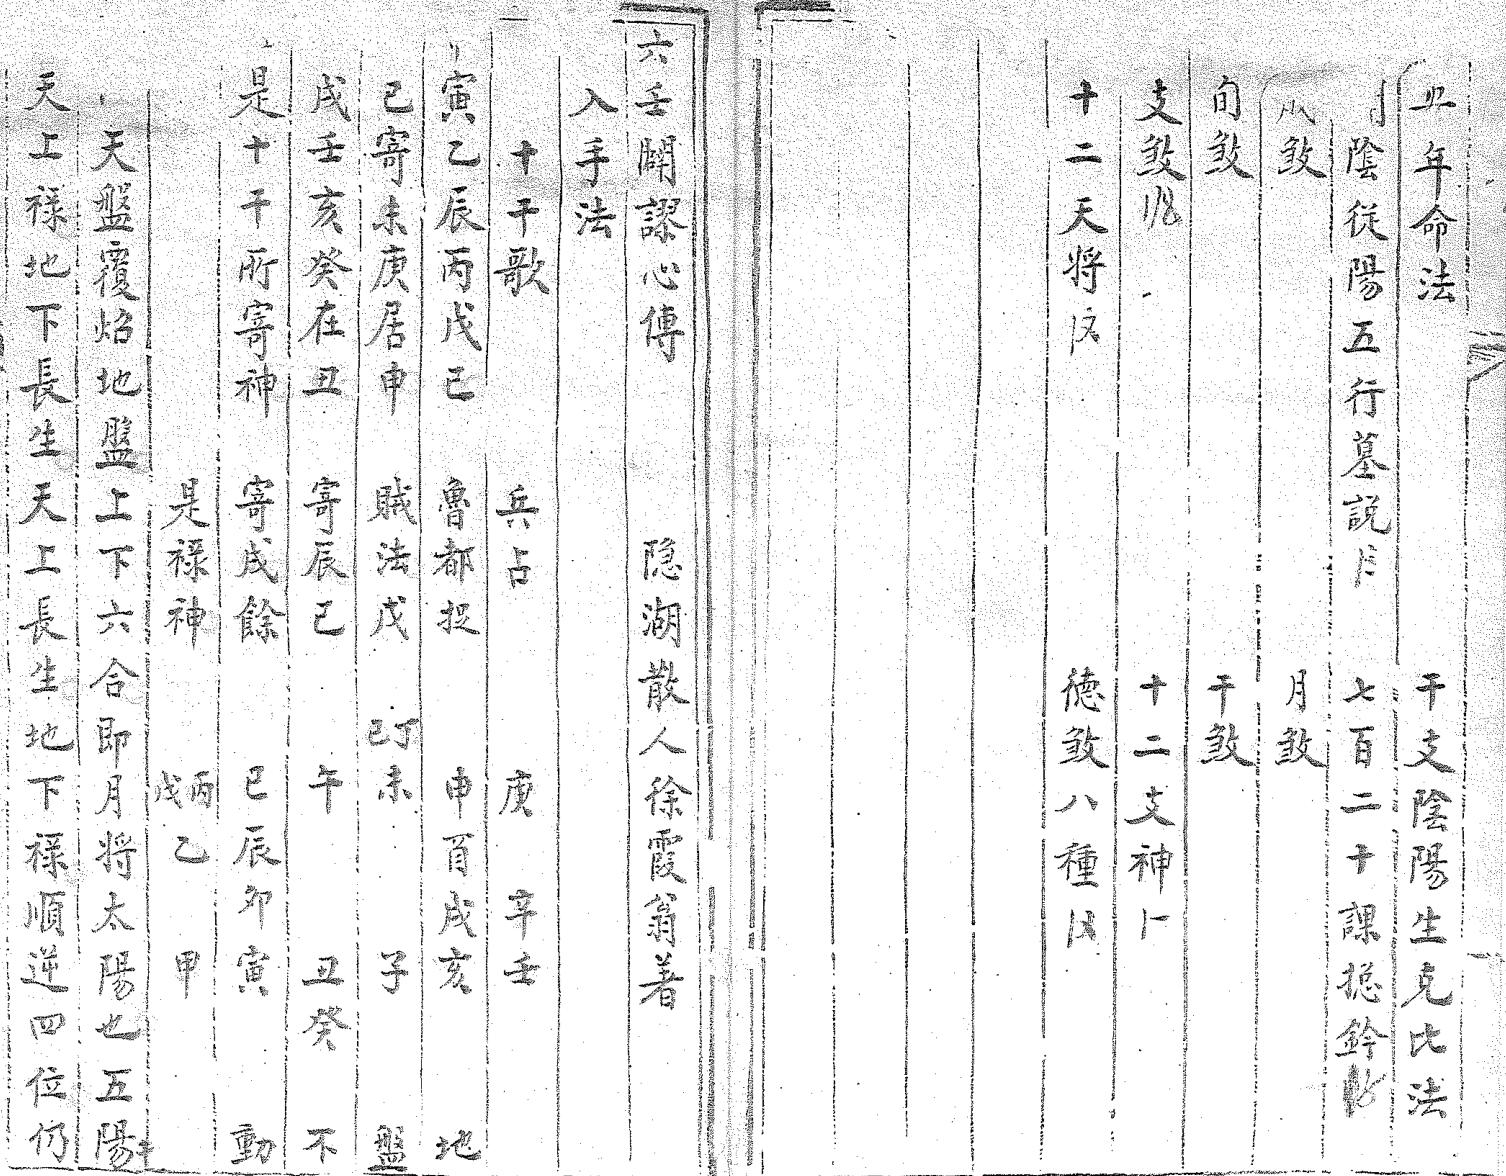 年命法 干支陰陽生克比法
陰從陽五行墓説 七百二十課捴鈐
煞 月煞
旬煞 干煞
支煞 十二支神
十二天将 德煞八種
六壬闢謬心傳 隐湖散人徐霞翁著
入手法
十干歌 兵占 庚 辛壬
寅乙辰丙戊巳 魯都捉 申酉戌亥 地
己寄未庚居申 賊法戊 己丁未 子 盤
戌壬亥癸在丑 寄辰己 午 丑癸 不
是十干所寄神 寄戌餘 巳辰卯寅 動
是祿神 丙戊乙 甲
天盤覆焰地盤上下六合即月将太陽也五陽干
天上祿地下長生天上長生地下祿順逆四位仍